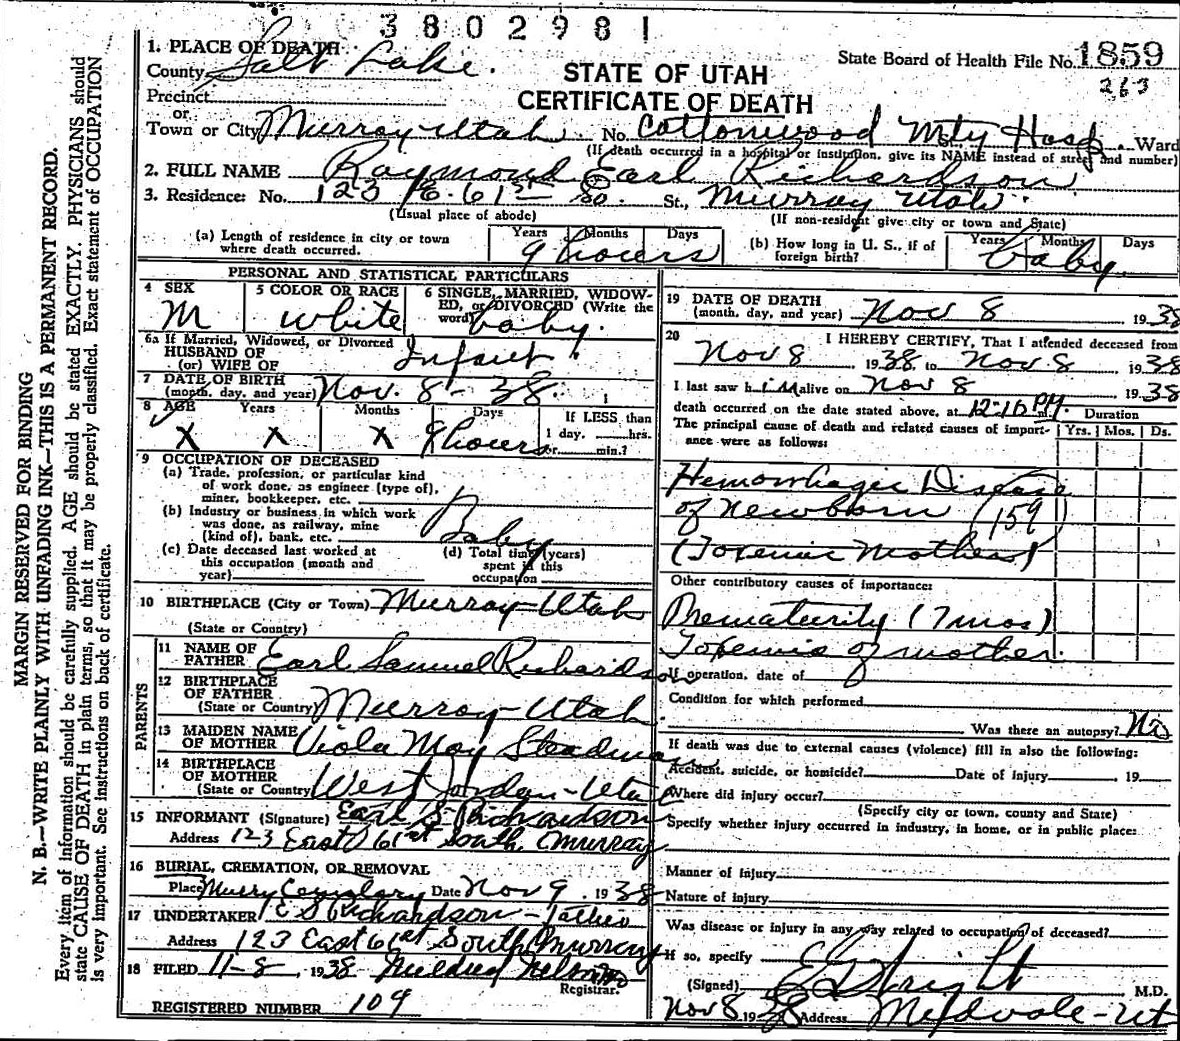 3802981
1. PLACE OF DEATH
State Board of Health File No. 1859
263
County Salt Lake.
STATE OF UTAH
CERTIFICATE OF DEATH
Precinct
or
Town or City Murray-Utah No. Cottonwood Mty Hosp. Ward
(If death occurred in a hospital or institution, give its NAME instead of street and number)
2. FULL NAME Raymond Earl Richardson
3. Residence: No. 123 E. 61st So. St., Murray Utah.
(Usual place of abode) (If non-resident give city or town and State)
(a) Length of residence in city or town where death occurred. Years Months Days 9 hours
(b) How long in U. S., if of foreign birth? Years Months Days baby.
PERSONAL AND STATISTICAL PARTICULARS
4 SEX M
5 COLOR OR RACE white
6 SINGLE, MARRIED, WIDOWED, or DIVORCED (Write the word) baby.
6a If Married, Widowed, or Divorced
HUSBAND OF
(or) WIFE OF Infant
7 DATE OF BIRTH
(month, day, and year) Nov. 8 - 38.
8 AGE Years Months Days If LESS than
X X X 9 hours 1 day, hrs.
or min.?
9 OCCUPATION OF DECEASED
(a) Trade, profession, or particular kind
of work done, as engineer (type of),
miner, bookkeeper, etc.
(b) Industry or business in which work
was done, as railway, mine
(kind of), bank, etc. Baby
(c) Date deceased last worked at
this occupation (month and
year)
(d) Total time (years)
spent in this
occupation
10 BIRTHPLACE (City or Town) Murray-Utah
(State or Country)
PARENTS
11 NAME OF
FATHER Earl Samuel Richardson
12 BIRTHPLACE
OF FATHER
(State or Country) Murray-Utah.
13 MAIDEN NAME
OF MOTHER Viola May Steadman
14 BIRTHPLACE
OF MOTHER
(State or Country) West Jordan-Utah
15 INFORMANT (Signature) Earl S Richardson
Address 123 East 61st South, Murray
16 BURIAL, CREMATION, OR REMOVAL
Place Date Nov 9, 1938
17 UNDERTAKER E S Richardson - Father
Address 123 East 61st South Murray
18 FILED 11-8, 1938
Registrar.
REGISTERED NUMBER 109
19 DATE OF DEATH
(month, day, and year) Nov 8 1938
20 I HEREBY CERTIFY, That I attended deceased from
Nov 8 1938, to Nov. 8 1938
I last saw him alive on Nov 8 1938
death occurred on the date stated above, at 12-10 PM.
The principal cause of death and related causes of importance were as follows:
Duration
Yrs. Mos. Ds.
Hemorrhagic Disease
of Newborn (159)
(Toxemic Mother)
Other contributory causes of importance:
Prematurity (7 mos)
Toxemia of mother.
If operation, date of
Condition for which performed
Was there an autopsy? No
If death was due to external causes (violence) fill in also the following:
Accident, suicide, or homicide? Date of injury 19
Where did injury occur?
(Specify city or town, county and State)
Specify whether injury occurred in industry, in home, or in public place:
Manner of injury
Nature of injury
Was disease or injury in any way related to occupation of deceased?
If so, specify
(Signed) M.D.
Nov 8 1938 Address Midvale-Ut
MARGIN RESERVED FOR BINDING
N. B.—WRITE PLAINLY WITH UNFADING INK—THIS IS A PERMANENT RECORD.
Every item of information should be carefully supplied. AGE should be stated EXACTLY. PHYSICIANS should
state CAUSE OF DEATH in plain terms, so that it may be properly classified. Exact statement of OCCUPATION
is very important. See instructions on back of certificate.